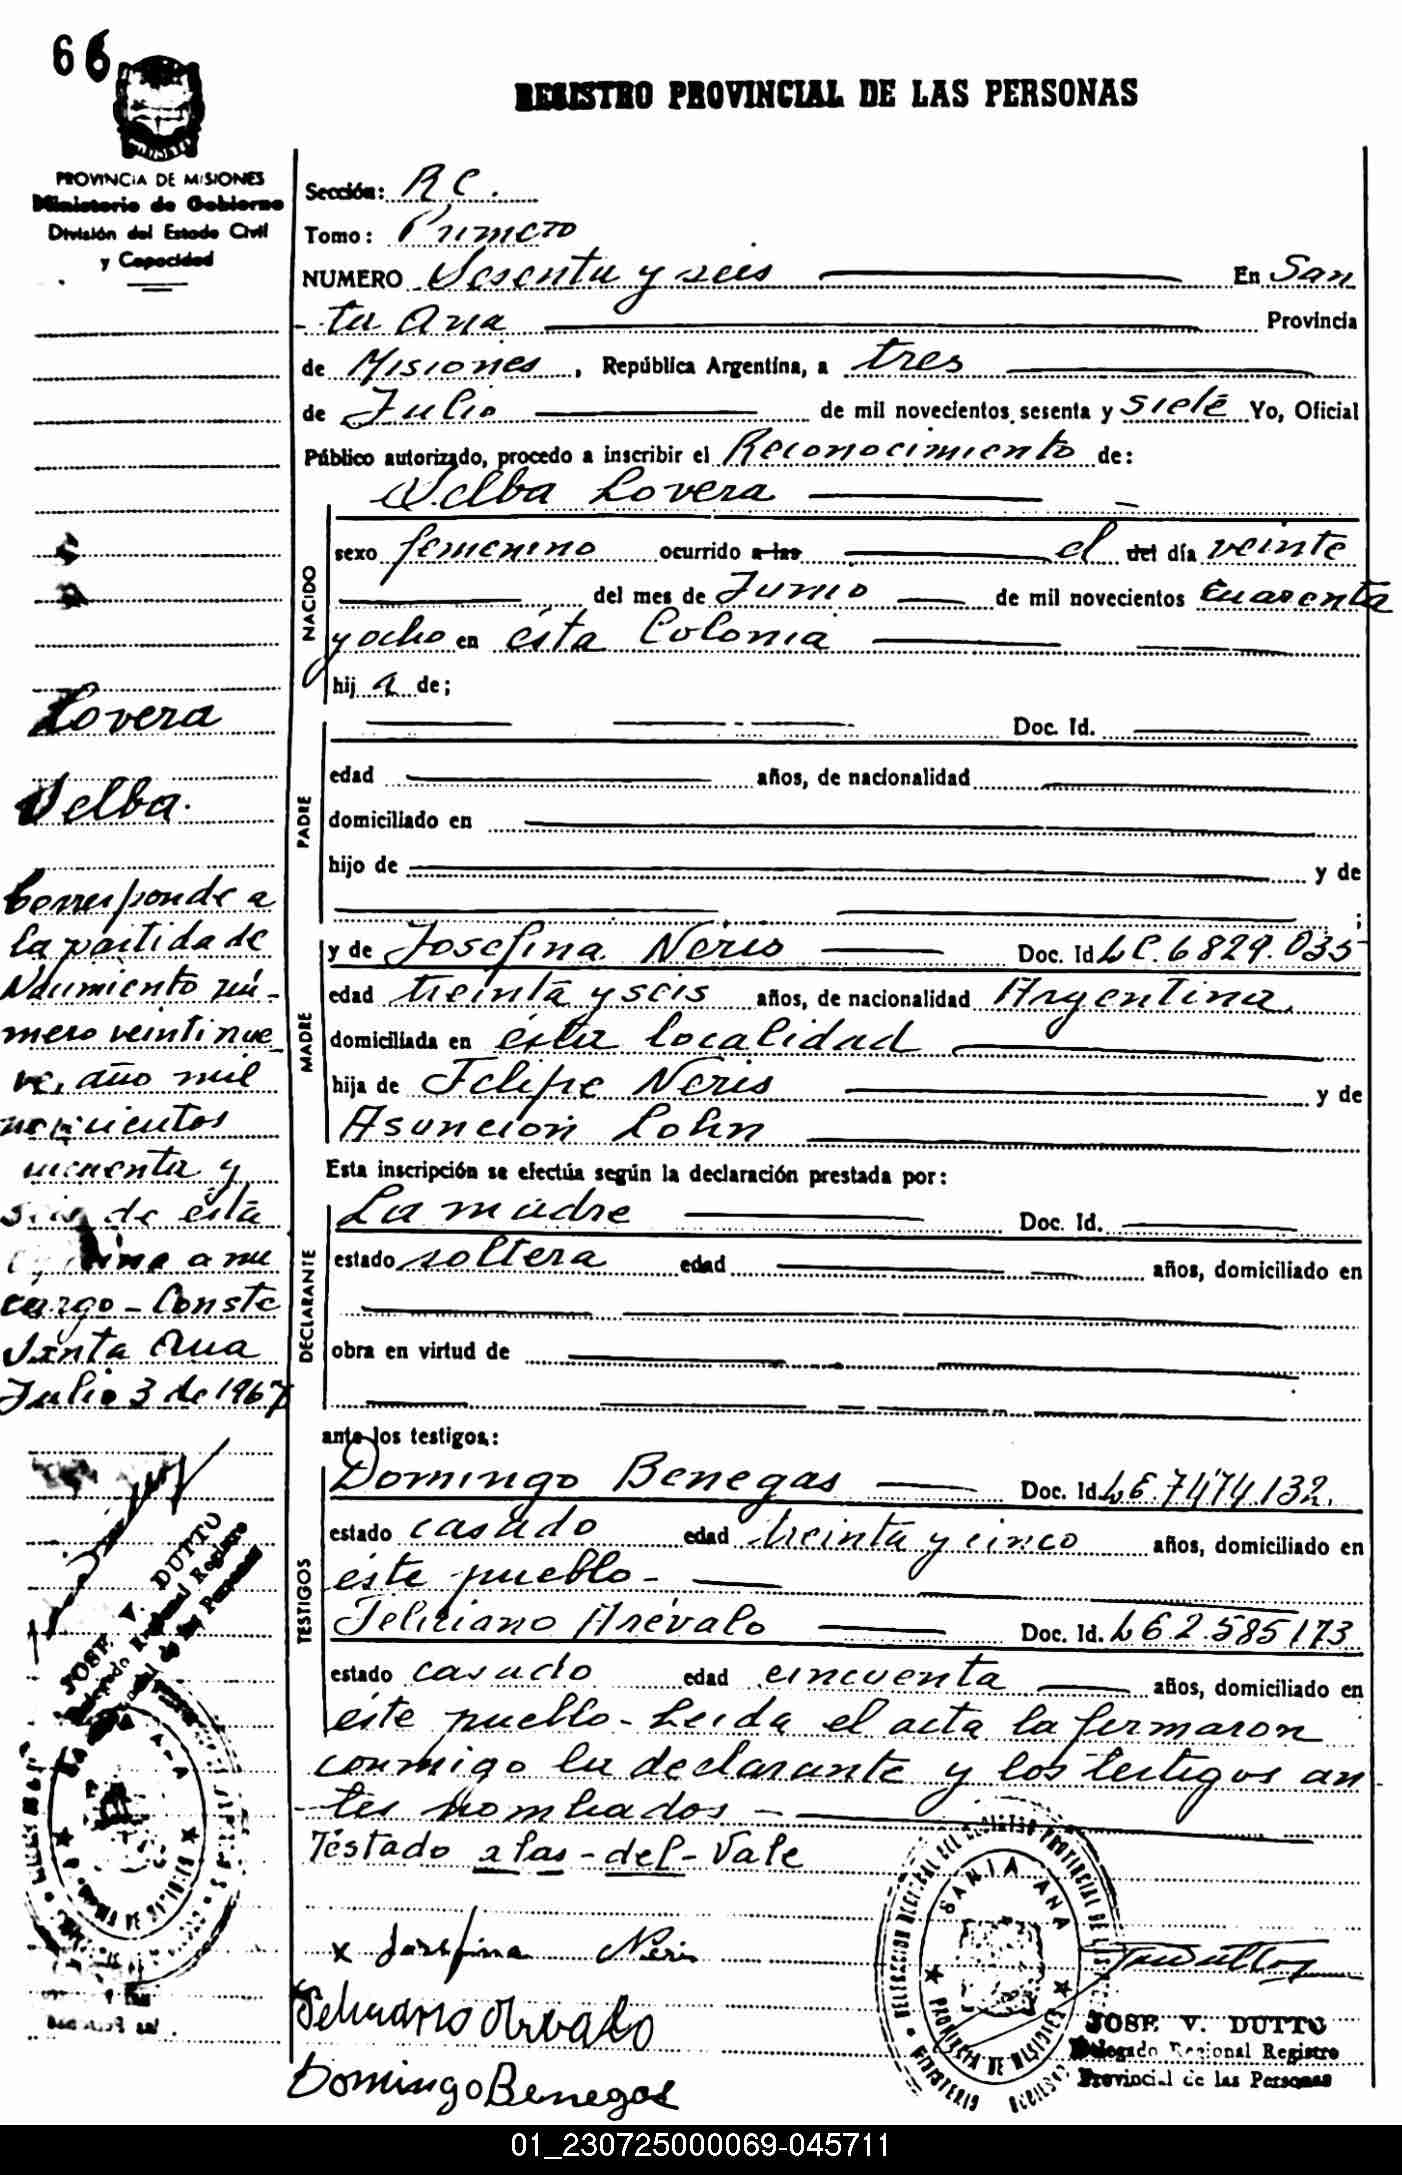 66
REGISTRO PROVINCIAL DE LAS PERSONAS
PROVINCIA DE MISIONES
Ministerio de Gobierno
División del Estado Civil
y Capacidad
Sección: RC.
Tomo: Primero
NUMERO Sesenta y seis En San
ta Ana Provincia
de Misiones, República Argentina, a tres
de Julio de mil novecientos sesenta y siete Yo, Oficial
Público autorizado, procedo a inscribir el Reconocimiento de:
Selba Lovera
NACIDO
sexo femenino ocurrido a las el del día veinte
del mes de Junio de mil novecientos cuarenta
y ocho en ésta Colonia
hija de;
PADRE
Doc. Id.
edad años, de nacionalidad
domiciliado en
hijo de y de
;
MADRE
y de Josefina Neris Doc. Id LC. 6829.035
edad treinta y seis años, de nacionalidad Argentina
domiciliada en ésta localidad
hija de Felipe Neris y de
Asunción Lohn
Esta inscripción se efectúa según la declaración prestada por:
DECLARANTE
La madre Doc. Id.
estado soltera edad años, domiciliado en
obra en virtud de
ante los testigos:
TESTIGOS
Domingo Benegas Doc. Id. LE. 7474.132.
estado casado edad treinta y cinco años, domiciliado en
éste pueblo -
Feliciano Arévalo Doc. Id. LE 2.585173
estado casado edad cincuenta años, domiciliado en
éste pueblo - Leida el acta la firmaron
conmigo la declarante y los testigos an
tes nombrados -
Testado a las - del - Vale
x Josefina Neris
Feliciano Arevalo
Domingo Benegas
JOSE V. DUTTO
Delegado Regional Registro
Provincial de las Personas
SANTA ANA
PROVINCIA DE MISIONES
Lovera
Selba.
Corresponde a
la partida de
Nacimiento nú-
mero veintinue
ve, año mil
novecientos
cincuenta y
seis de ésta
oficina a mi
cargo - Conste
Santa Ana
Julio 3 de 1967
JOSE V. DUTTO
Delegado Regional Registro
Provincial de las Personas
01_230725000069-045711